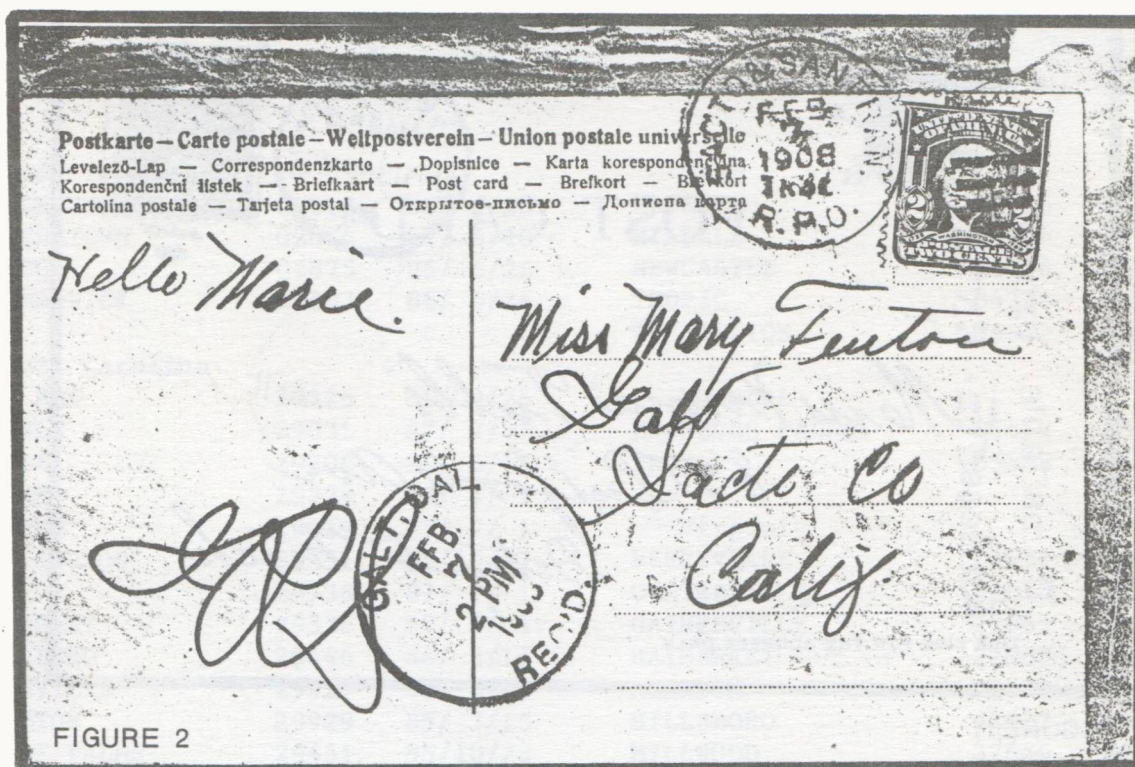 Postkarte — Carte postale — Weltpostverein — Union postale universelle
Levelező-Lap — Correspondenzkarte — Dopisnice — Karta korespondencyjna
Korespondenční lístek — Briefkaart — Post card — Brefkort — Brevkort
Cartolina postale — Tarjeta postal — Открытое-письмо — Дописна карта
SACTO & SAN FRAN.
FEB
1908
R.P.O.
WASHINGTON
2 2
TWO CENTS
Hello Marie.
Miss Mary Fenton
Galt
Sacto Co
Calif.
GALT, CAL.
FEB.
7
2 PM
REC'D.
FIGURE 2